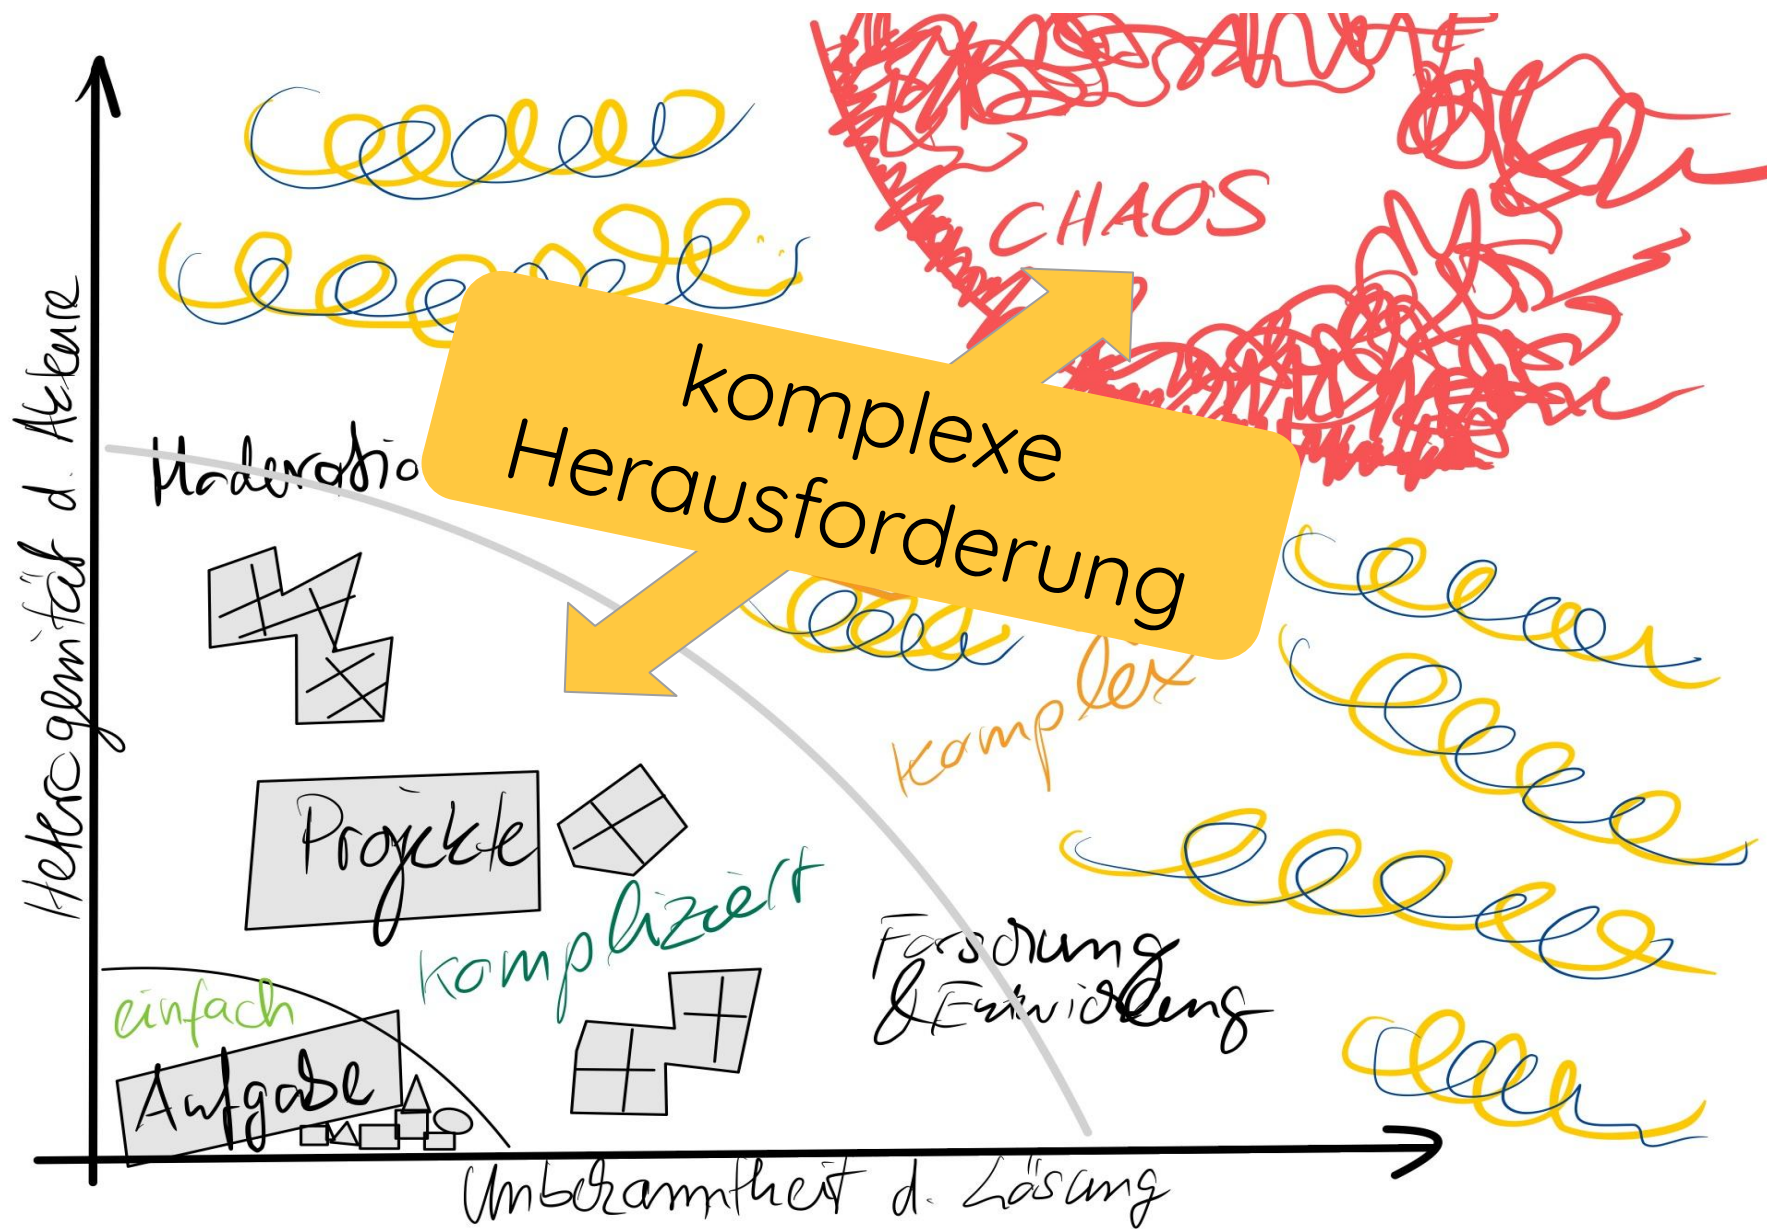 CHAOS
Heterogenität d. Akteure
komplexe
Herausforderung
Moderatio
komplex
Projekte
kompliziert
Forschung
& Entwicklung
einfach
Aufgabe
Unbekanntheit d. Lösung